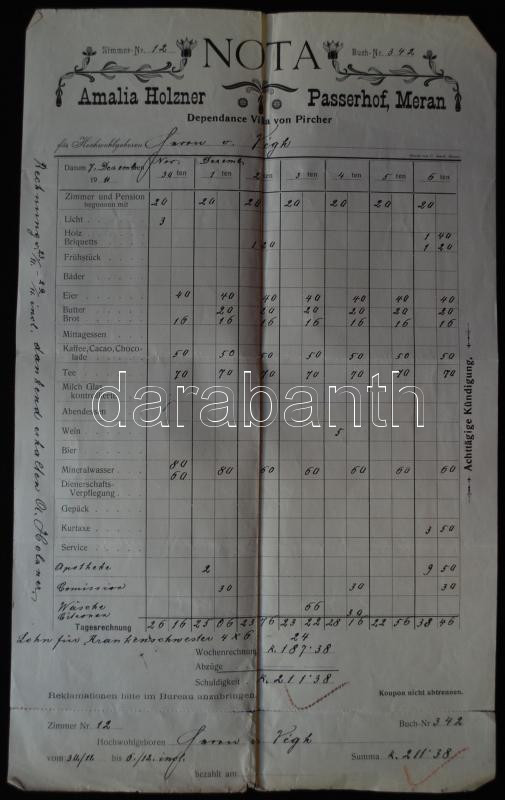 Zimmer-Nr. 12 NOTA Buch-Nr. 342
Amalia Holzner Passerhof, Meran
Dependance Villa von Pircher
für Hochwohlgeboren Herrn v. Végh
Datum 7. Dezember Nov. Dezemb.
19 11 30 ten 1 ten 2 ten 3 ten 4 ten 5 ten 6 ten
Zimmer und Pension
begonnen mit 20 20 20 20 20 20 20
Licht 3
Holz 1 40
Briquetts 1 20 1 20
Frühstück
Bäder
Eier 40 40 40 40 40 40 40
Butter 20 20 20 20 20 20
Brot 16 16 16 16 16 16 16
Mittagessen
Kaffee, Cacao, Choco-
lade 50 50 50 50 50 50 50
Tee 70 70 70 70 70 70 70
Milch Glas
Abendessen
Wein 5
Bier
Mineralwasser 80 60 80 60 60 60 60 60
Dienerschafts-
Verpflegung
Gepäck
Kurtaxe 3 50
Service
Apotheke 2 9 50
Comission 30 30 30
Wäsche 66
Citronen 30
Tagesrechnung 26 16 25 06 23 76 23 22 28 16 22 56 38 46
Lohn für Krankenschwester 4 x 6 24
Wochenrechnung K. 187·38
Abzüge
Schuldigkeit K. 211·38
Reklamationen bitte im Bureau anzubringen. Koupon nicht abtrennen.
Achttägige Kündigung.
dankend erhalten A. Holzner
Zimmer Nr. 12 Buch-Nr 342
Hochwohlgeboren Herrn v. Végh
vom 30/11 bis 6/12. incl. Summa K. 211·38
bezahlt am
darabanth